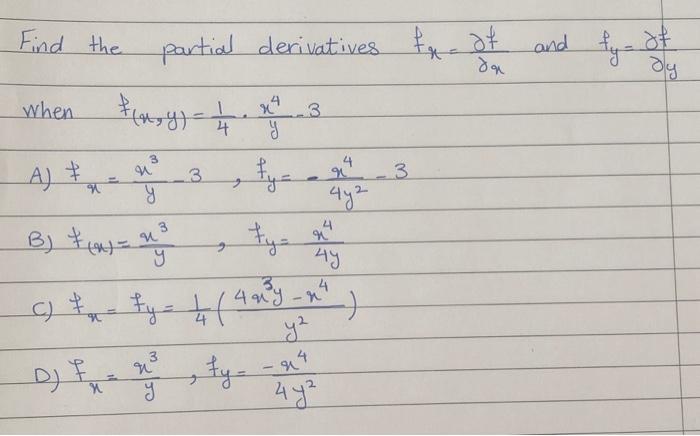 Find the partial derivatives fx = ∂f/∂x and fy = ∂f/∂y
when f(x,y) = 1/4 · x⁴/y - 3
A) fx = x³/y - 3 , fy = - x⁴/4y² - 3
B) f(x) = x³/y , fy = x⁴/4y
C) fx = fy = 1/4 ( 4x³y - x⁴ / y² )
D) fx = x³/y , fy = - x⁴/4y²